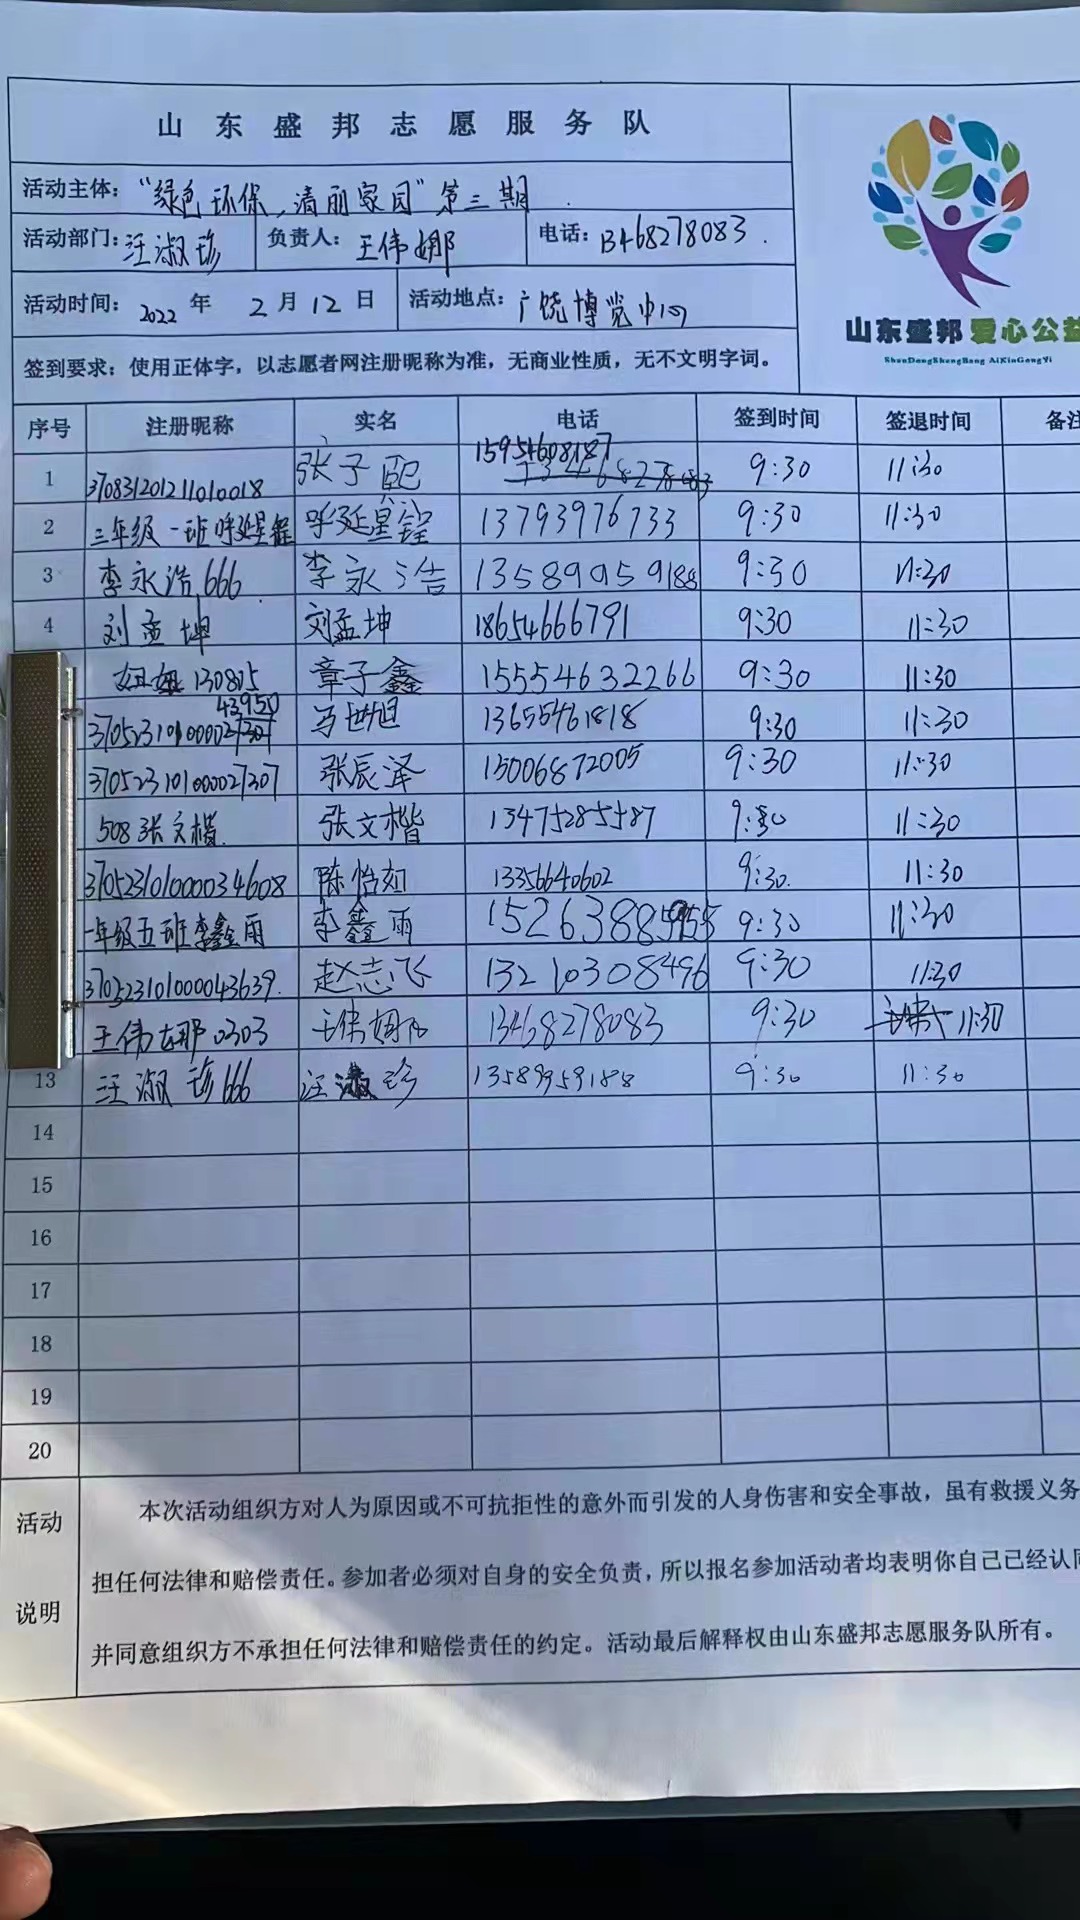 山东盛邦志愿服务队
活动主体：“绿色环保，清丽家园”第三期
活动部门：汪淑珍 负责人：王伟娜 电话：13468278083
活动时间：2022年2月12日 活动地点：广饶博览中心
山东盛邦爱心公益
ShanDongShengBang AiXinGongYi
签到要求：使用正体字，以志愿者网注册昵称为准，无商业性质，无不文明字词。
序号 注册昵称 实名 电话 签到时间 签退时间 备注
1 370831201211010018 张子熙 15954608187 9:30 11:30
2 三年级一班呼延星铨 呼延星铨 13793976733 9:30 11:30
3 李永浩666 李永浩 13589959188 9:30 11:30
4 刘孟坤 刘孟坤 18654666791 9:30 11:30
妞妞130805 章子鑫 15554632266 9:30 11:30
3705231010000243950 马世旭 13655461818 9:30 11:30
370523101000027307 张辰泽 15006872005 9:30 11:30
508张文楷 张文楷 13475285587 9:30 11:30
370523101000034608 陈怡如 13356640602 9:30 11:30
一年级五班李鑫雨 李鑫雨 15263885955 9:30 11:30
370523101000043639 赵志飞 13210308496 9:30 11:30
王伟娜0303 王伟娜 13468278083 9:30 11:30
13 汪淑珍666 汪淑珍 13589959188 9:30 11:30
14
15
16
17
18
19
20
活动说明
本次活动组织方对人为原因或不可抗拒性的意外而引发的人身伤害和安全事故，虽有救援义务
担任何法律和赔偿责任。参加者必须对自身的安全负责，所以报名参加活动者均表明你自己已经认同
并同意组织方不承担任何法律和赔偿责任的约定。活动最后解释权由山东盛邦志愿服务队所有。